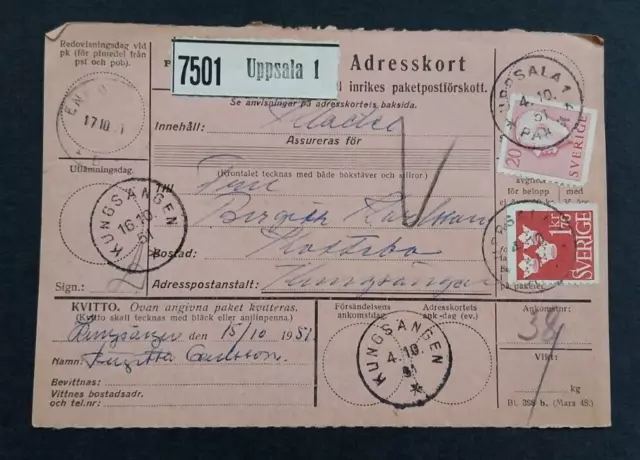 Redovisningsdag vid
pk (för pmedel från
pst och pob).
7501 Uppsala 1
Adresskort
inrikes paketpostförskott.
Se anvisningar på adresskortets baksida.
Innehåll: Kläder
Assureras för
(Krontalet tecknas med både bokstäver och siffror.)
17 10
UPPSALA 1
4.10.
51
PAK
20
SVERIGE
Utlämningsdag.
Till Fru
Birgitta Karlsson
Bostad:
Adresspostanstalt: Kungsängen
KUNGSÄNGEN
16.10.
51
för belopp
med
1 kr 70
SVERIGE
på paketet
Sign.:
KVITTO. Ovan angivna paket kvitteras.
(Kvitto skall tecknas med bläck eller anilinpenna.)
Kungsängen den 15/10 1951
Namn: Birgitta Carlsson
Bevittnas:
Vittnes bostadsadr.
och tel.nr:
Försändelsens
ankomstdag:
Adresskortets
ank.-dag (ev.)
KUNGSÄNGEN
4.10.
51
Ankomstnr:
Vikt:
kg
Bl. 288 b. (Mars 48.)